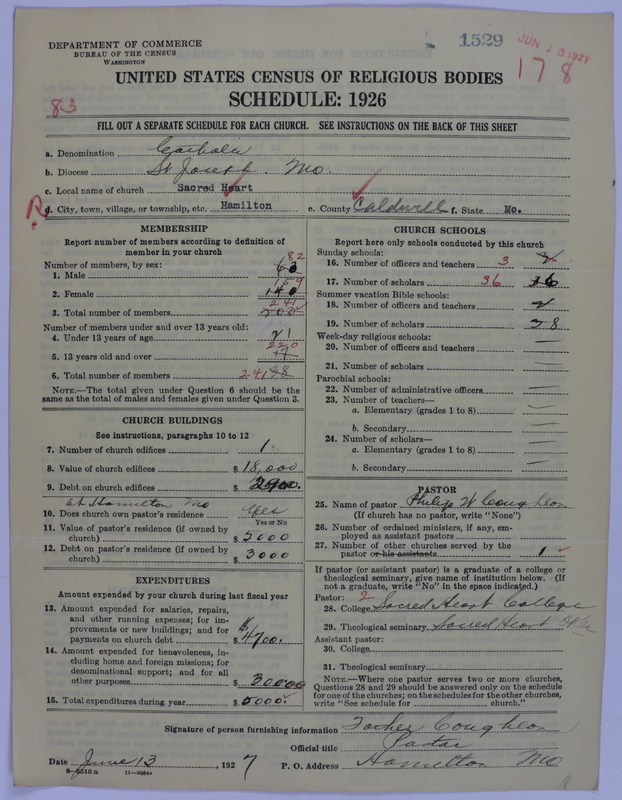 DEPARTMENT OF COMMERCE
BUREAU OF THE CENSUS
WASHINGTON
1529
JUN 1927
178
UNITED STATES CENSUS OF RELIGIOUS BODIES
SCHEDULE: 1926
83
FILL OUT A SEPARATE SCHEDULE FOR EACH CHURCH. SEE INSTRUCTIONS ON THE BACK OF THIS SHEET
a. Denomination Catholic
b. Diocese St Joseph. Mo.
c. Local name of church Sacred Heart
R d. City, town, village, or township, etc. Hamilton e. County Caldwell f. State Mo.
MEMBERSHIP
Report number of members according to definition of
member in your church
Number of members, by sex:
1. Male 82
2. Female 140
3. Total number of members 241 200
Number of members under and over 13 years old:
4. Under 13 years of age 21
5. 13 years old and over 220
6. Total number of members 241
NOTE.—The total given under Question 6 should be the
same as the total of males and females given under Question 3.
CHURCH BUILDINGS
See instructions, paragraphs 10 to 12
7. Number of church edifices 1.
8. Value of church edifices $ 18,000
9. Debt on church edifices $ 2900.
at Hamilton Mo
10. Does church own pastor's residence Yes
Yes or No
11. Value of pastor's residence (if owned by
church) $ 5000
12. Debt on pastor's residence (if owned by
church) $ 3000
EXPENDITURES
Amount expended by your church during last fiscal year
13. Amount expended for salaries, repairs,
and other running expenses; for im-
provements or new buildings; and for
payments on church debt $ 4700.
14. Amount expended for benevolences, in-
cluding home and foreign missions; for
denominational support; and for all
other purposes $ 300.00
15. Total expenditures during year $ 5000.
CHURCH SCHOOLS
Report here only schools conducted by this church
Sunday schools:
16. Number of officers and teachers 3 2
17. Number of scholars 36 36
Summer vacation Bible schools:
18. Number of officers and teachers 2
19. Number of scholars 28
Week-day religious schools:
20. Number of officers and teachers —
21. Number of scholars —
Parochial schools:
22. Number of administrative officers —
23. Number of teachers—
a. Elementary (grades 1 to 8) —
b. Secondary —
24. Number of scholars—
a. Elementary (grades 1 to 8) —
b. Secondary —
PASTOR
25. Name of pastor Philip W Coughlon
(If church has no pastor, write "None")
26. Number of ordained ministers, if any, em-
ployed as assistant pastors
27. Number of other churches served by the
pastor or his assistants 1
If pastor (or assistant pastor) is a graduate of a college or
theological seminary, give name of institution below. (If
not a graduate, write "No" in the space indicated.)
Pastor: 2
28. College Sacred Heart College
29. Theological seminary Sacred Heart
Assistant pastor:
30. College
31. Theological seminary
NOTE.—Where one pastor serves two or more churches,
Questions 28 and 29 should be answered only on the schedule
for one of the churches; on the schedules for the other churches,
write "See schedule for church."
Signature of person furnishing information Father Coughlon
Official title Pastor
Date June 13, 1927 P. O. Address Hamilton Mo
8-5218a 11-9564